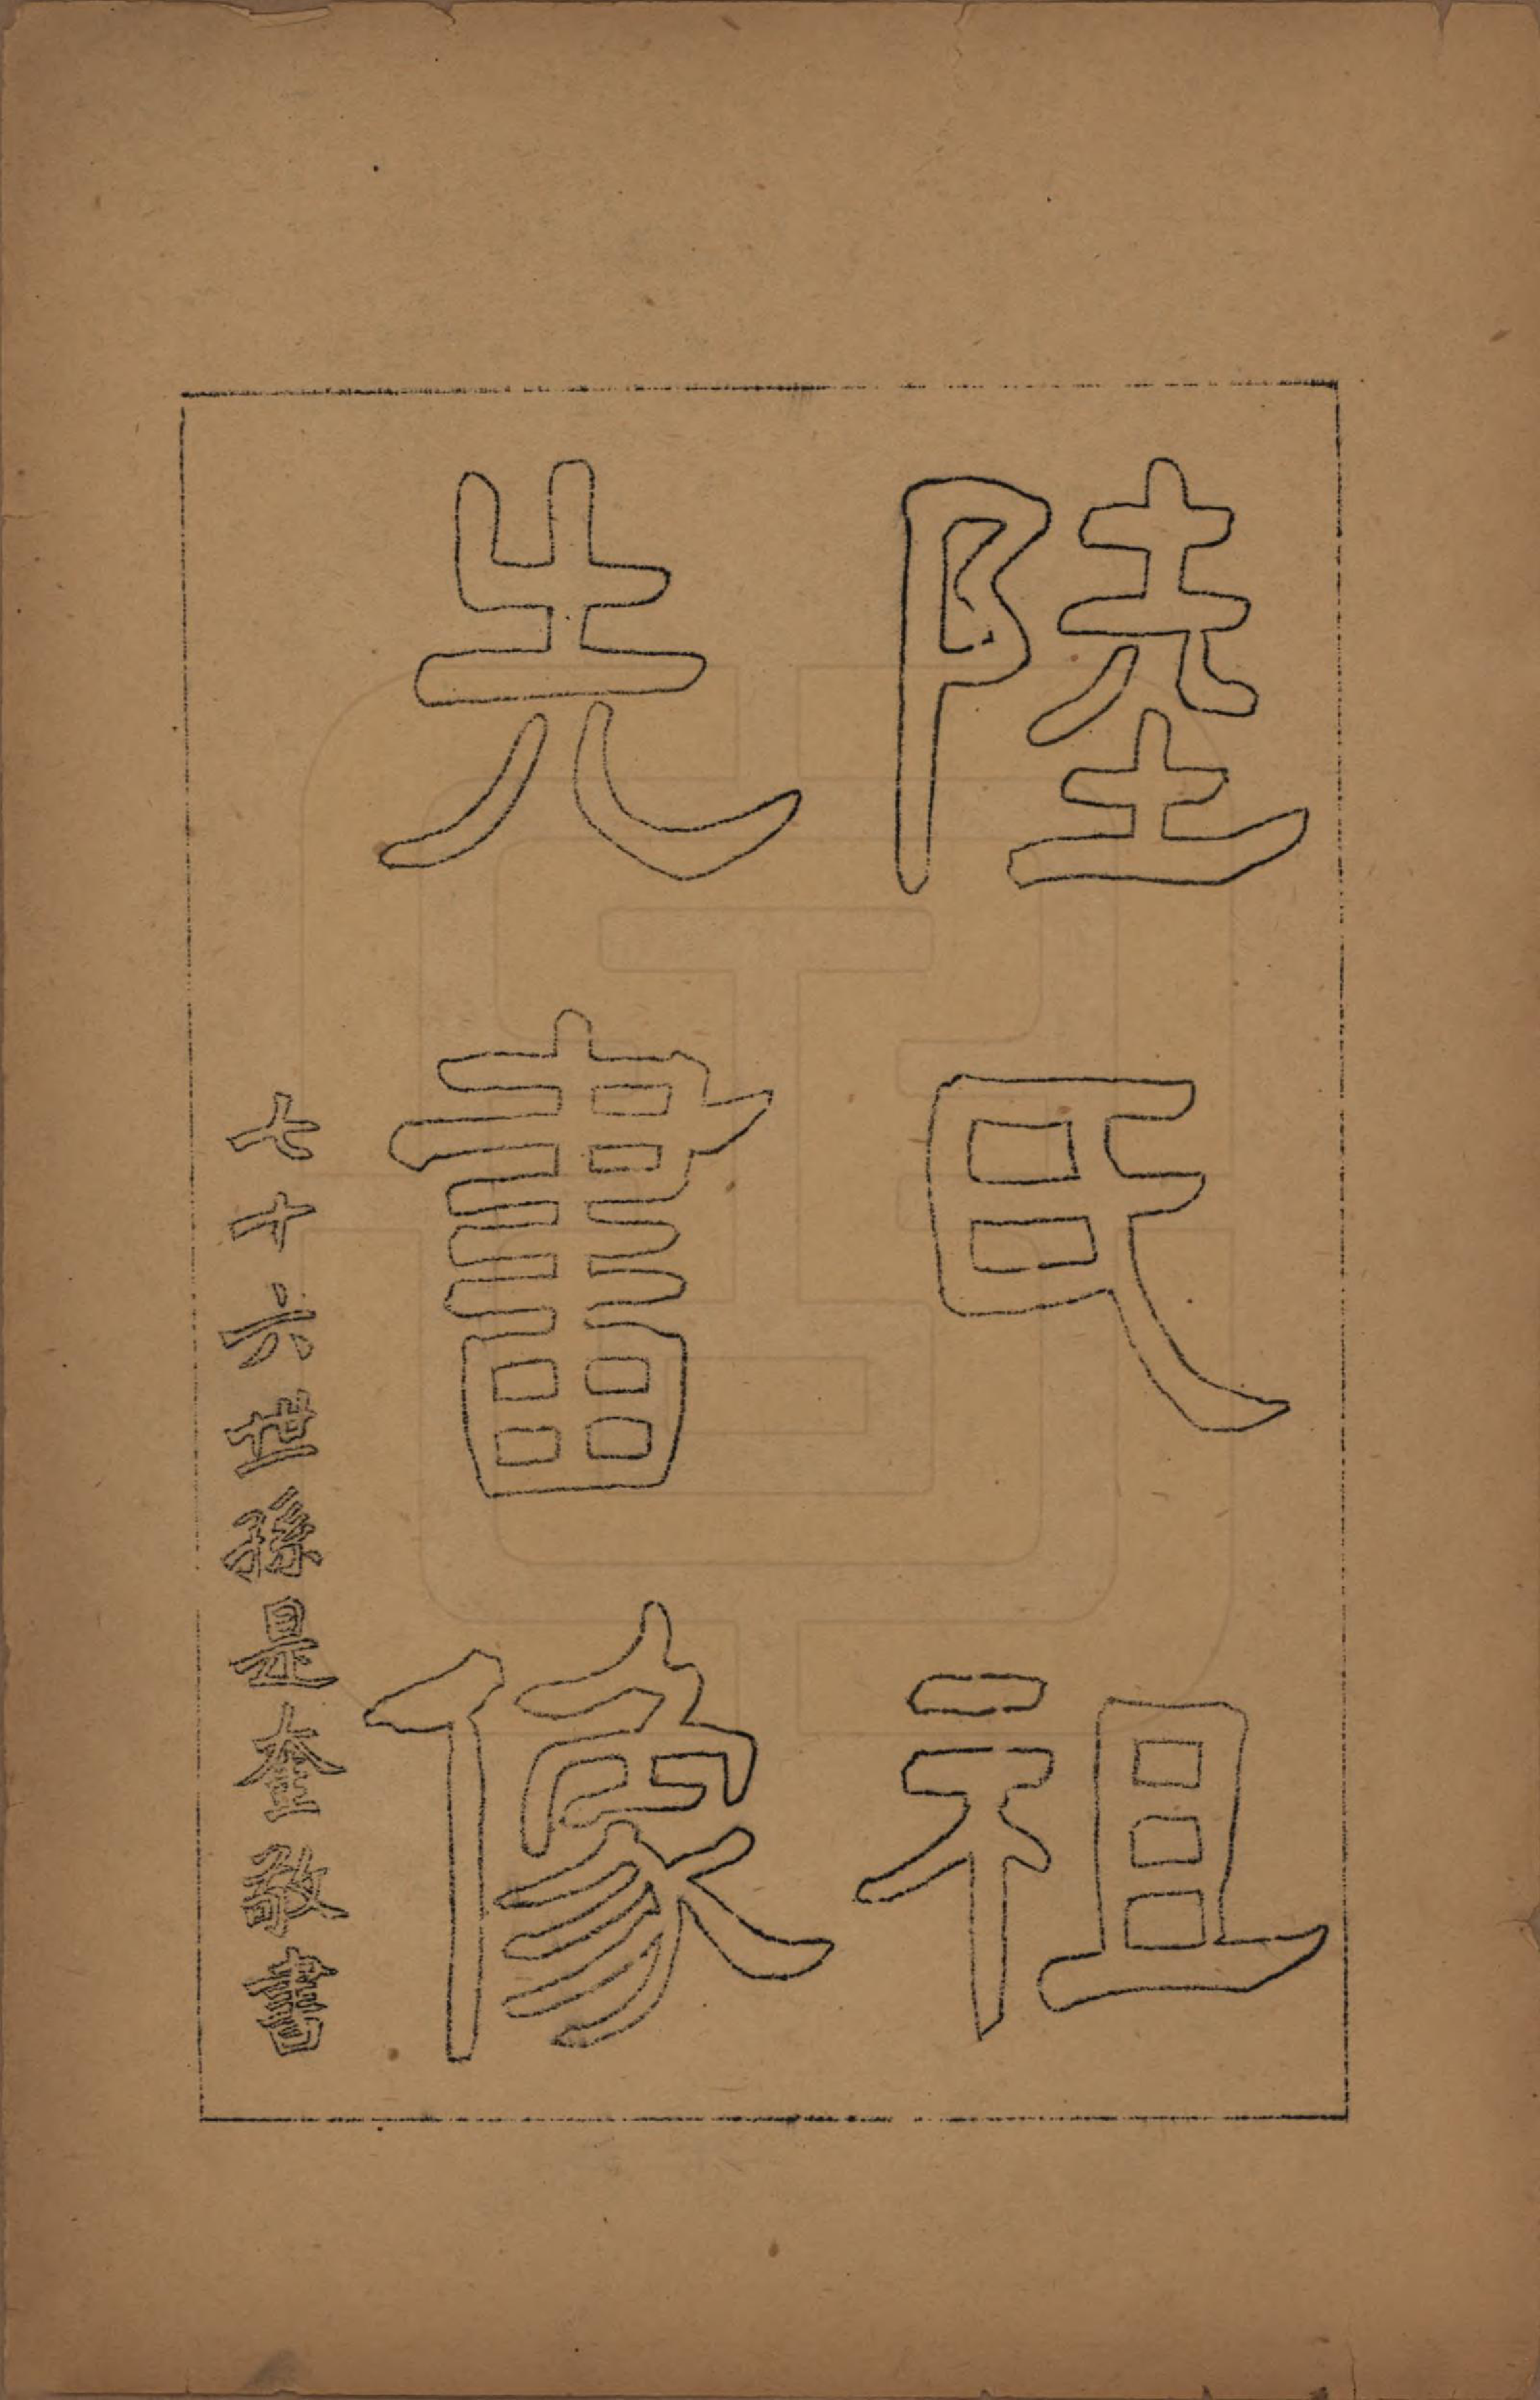 陸氏祖
先畫像
七十六世孫是奎敬書